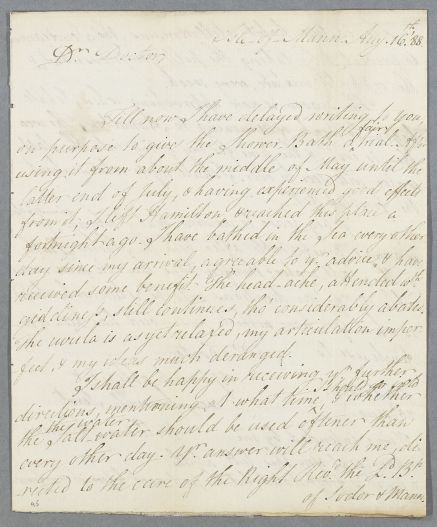 Isle of Mann Aug. 16.th '88.
Dr. Doctor,
Till now I have delayed writing to you,
on purpose to give the Shower Bath a fair trial. After
using it from about the middle of May until the
latter end of July, & having experienced good effects
from it, I left Hamilton, & reached this place a
fortnight ago. I have bathed in the Sea every other
day since my arrival, agreeable to yr. advice, & have
received some benefit. The head-ache, attended wth.
giddiness, still continues, tho' considerably abated.
The uvula is as yet relaxed, my articulation imper
fect, & my ideas much deranged.
I shall be happy in receiving yr. further
directions, mentioning 1 what time, I should go into
the water & whether
the salt water should be used oftener than
every other day. Yr. answer will reach me, di
rected to the care of the Right Revd. the Ld. Bp.
of Sodor & Mann.